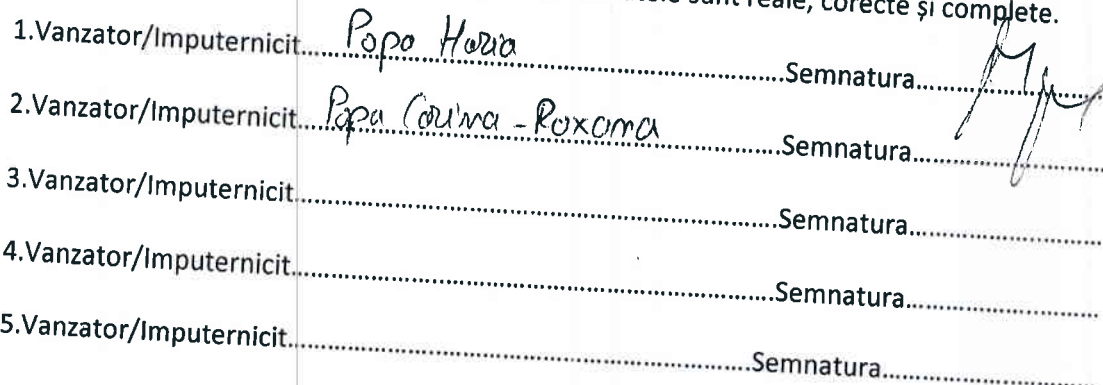 sunt reale, corecte și complete.
1.Vanzator/Imputernicit.....Popa Horia.....Semnatura.....
2.Vanzator/Imputernicit.....Popa Corina-Roxana.....Semnatura.....
3.Vanzator/Imputernicit.....Semnatura.....
4.Vanzator/Imputernicit.....Semnatura.....
5.Vanzator/Imputernicit.....Semnatura.....